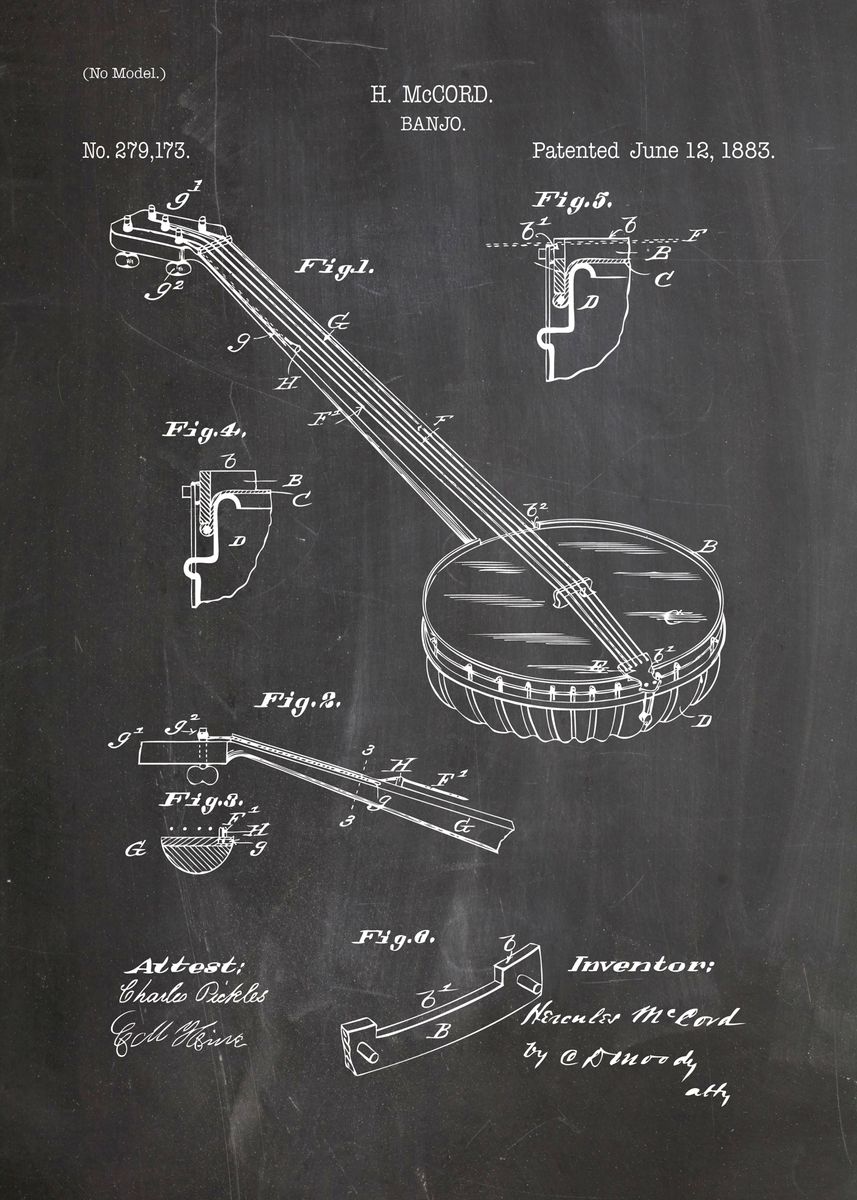 (No Model.)
H. McCORD.
BANJO.
No. 279,173.
Patented June 12, 1883.
Fig.5.
b¹ b F
B
C
D
g¹
g²
Fig.1.
G
g
H
F¹
F
Fig.4.
b
B
C
D
b²
B
C
E b¹
D
Fig.2.
g¹ g²
3
H F¹
g
3
G
Fig.3.
F¹
H
G g
Fig.6.
b
b¹
B
Attest;
Charles Pickles
Inventor;
Hercules McCord
by C D Moody
atty